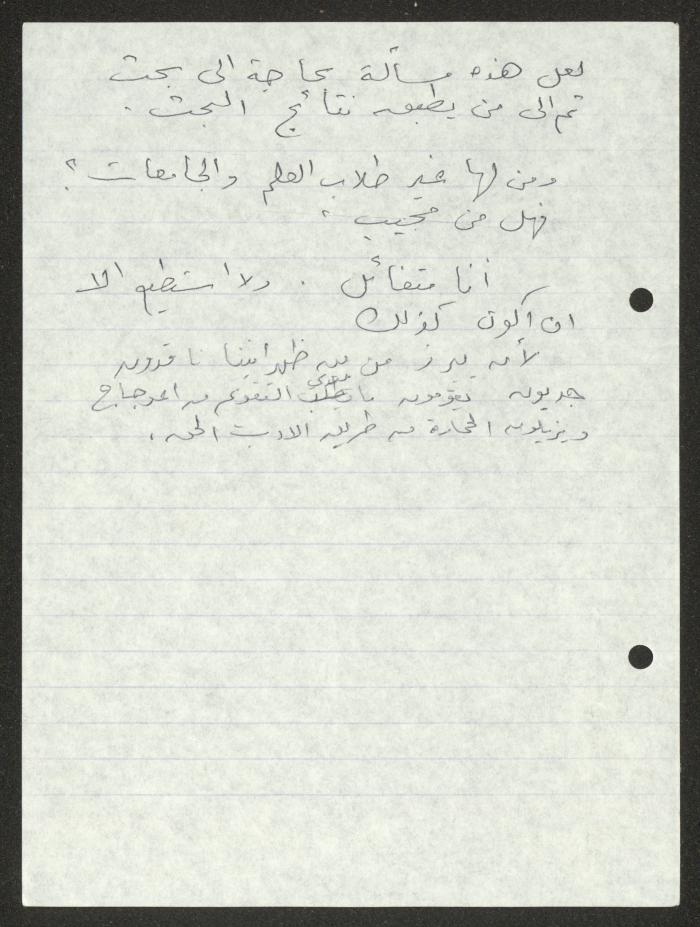 لعل هذه مسألة بحاجة الى بحث
ثم الى من يطبق نتائج البحث .
ومن لها غير طلاب العلم والجامعات ؟
فهل من مجيب ؟
أنا متفائل . ولا استطيع الا
ان اكون كذلك
لأن يبرز من بين ظهرانينا ناقدون
جديون يقومون ما التقويم من اعوجاج
ويزيلون الحجارة من طريق الادب الحق .